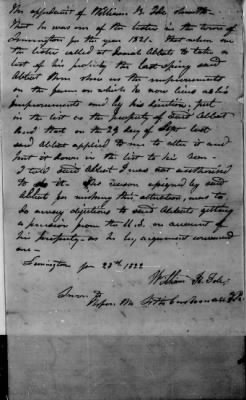 The affidavit of William H. Tole sheweth
that he was one of the listers in the town of
Lunington for the year 1821. that when one
the listers called at Josiah Abbots to take a
list of his polls &c the last spring said
Abbot then show us the improvements
on the farm on which he now lives as his
improvements and by his direction, put
in the list as the property of said Abbot
And that on the 29 day of Sept last
said Abbot applied to me to alter it and
put it down in the list to his son -
I told said Abbot I was not authorised
to do it. The reason assigned by said
Abbot for wishing this alteration, was to
do away objections to said Abbots getting
a pension from the U.S. on account of
his property - as he by argument convinced
me -
Lunington Jan 23th 1822
William H. Tole
Sworn to
Before Me